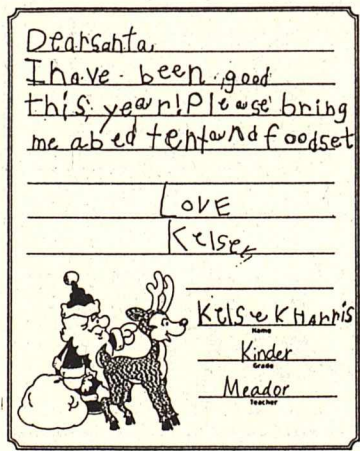 Dearsanta
I have been good
this year! Please bring
me abed tentand foodset
LOVE
Kelsey
Kelse K Harris
Name
Kinder
Grade
Meador
Teacher